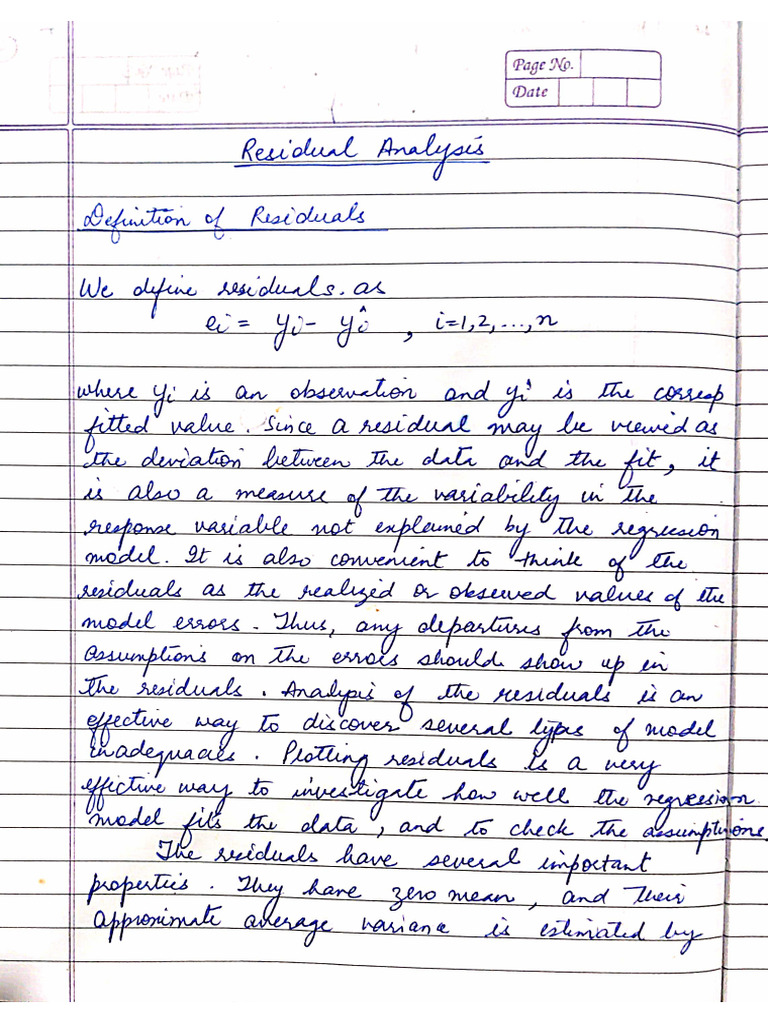 Page No.
Date
Residual Analysis
Definition of Residuals
We define residuals. as
ei = yi - ŷi , i=1,2,...,n
where yi is an observation and ŷi is the corresp
fitted value. Since a residual may be viewed as
the deviation between the data and the fit, it
is also a measure of the variability in the
response variable not explained by the regression
model. It is also convenient to think of the
residuals as the realized or observed values of the
model errors. Thus, any departures from the
assumptions on the errors should show up in
the residuals. Analysis of the residuals is an
effective way to discover several types of model
inadequacies. Plotting residuals is a very
effective way to investigate how well the regression
model fits the data, and to check the assumptions.
The residuals have several important
properties. They have zero mean, and their
approximate average variance is estimated by